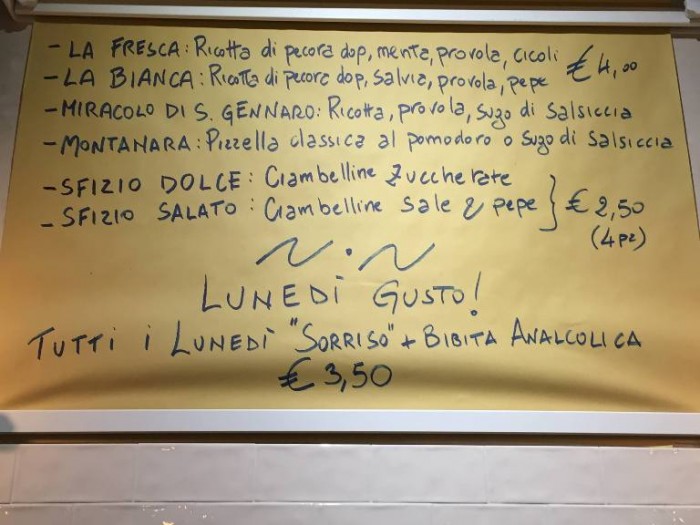 - LA FRESCA: Ricotta di pecora dop, menta, provola, cicoli € 4,00
- LA BIANCA: Ricotta di pecora dop, salvia, provola, pepe
- MIRACOLO DI S. GENNARO: Ricotta, provola, sugo di salsiccia
- MONTANARA: Pizzella classica al pomodoro o sugo di salsiccia
- SFIZIO DOLCE: Ciambelline zuccherate
- SFIZIO SALATO: Ciambelline sale e pepe } € 2,50
(4 pz)
LUNEDÌ GUSTO!
TUTTI i LUNEDÌ "SORRISO" + BIBITA ANALCOLICA
€ 3,50